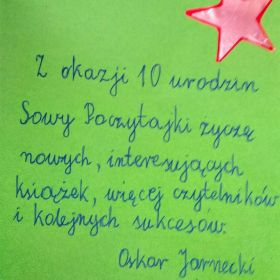 Z okazji 10 urodzin
Sowy Poczytajki życzę
nowych, interesujących
książek, więcej czytelników
i kolejnych sukcesów.
Oskar Jarnecki